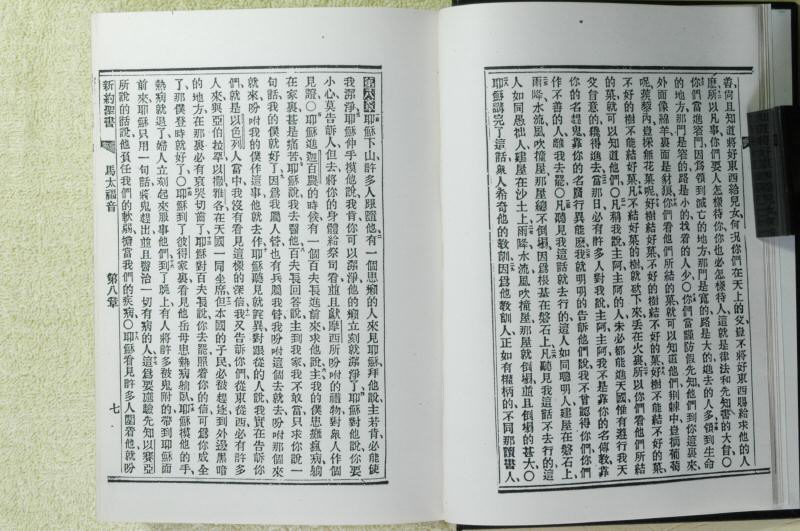 善尙且知道將好東西給兒女、何況你們在天上的父、豈不將好東西賜給求他的人
麼、所以凡事你們要人怎樣待你、你也必怎樣待人、這就是律法和先知書的大旨○
你們當進窄門、因爲領到滅亡的地方、那門是寬的、路是大的、進去的人多、領到生命
的地方、那門是窄的、路是小的、找着的人少○你們當謹防假先知、他們到你這裏來、
外面像綿羊、裏面是豺狼、你們看他們所結的菓、就可以知道他們、荆棘中豈摘葡萄
呢、蒺藜內豈採無花菓呢、好樹結好菓、不好的樹結不好的菓、好樹不能結不好的菓、
不好的樹不能結好菓、凡不結好菓的樹、就砍下來丢在火裏、所以你們看他們所結
的菓、就可以知道他們○凡稱我說、主阿主阿的人、未必都能進天國、惟有遵行我天
父旨意的、纔得進去、當那日必有許多人對我說、主阿主阿、我不是靠你的名傳教、靠
你的名趕鬼、靠你的名廣行異能麼、我就明明的告訴他們說、我不曾認得你們、你們
作不善的人、離我去罷○凡聽見我這話就去行的、這人如同聰明人、建屋在磐石上、
雨降、水流、風吹、撞屋、那屋總不倒塌、因爲根基在磐石上、凡聽見我這話不去行的、這
人如同愚拙人、建屋在沙土上、雨降、水流、風吹、撞屋、那屋就倒塌、並且倒塌的甚大○
耶穌講完了這話、衆人希奇他的敎訓、因爲他敎訓人、正如有權柄的、不同那讀書人、
第八章耶穌下山、許多人跟隨他、有一個患癩的人來見耶穌、拜他說、主若肯、必能使
我潔淨、耶穌伸手摸他說、我肯你可以潔淨、他的癩立刻就潔淨了、耶穌對他說、你要
小心、莫告訴人、但去將你的身體給祭司看、並且獻摩西所吩咐的禮物、對衆人作個
見證○耶穌進迦百農的時候、有一個百夫長進前來求他說、主、我的僕患癱瘋病、躺
在家裏、甚是痛苦、耶穌說、我去醫他、百夫長回答說、主到我家、我不敢當、只求你說一
句話、我的僕就好了、因爲我屬人管、也有兵屬我管、我吩咐這個去就去、吩咐那個來
就來、吩咐我的僕作這事、他就去作、耶穌聽見就詫異、對跟從的人說、我實在告訴你
們、就是以色列人當中、我沒有看見這樣的深信、我又告訴你們、從東從西、必有許多
人來、與亞伯拉罕以撒雅各在天國一同坐席、但本國的子民、必被趕逐到外邊黑暗
的地方、在那裏必有哀哭切齒了、耶穌對百夫長說、你去罷、照着你的信、可爲你成全
了、那僕登時就好了○耶穌到了彼得家裏、看見他岳母患熱病躺臥、耶穌摸他的手、
熱病就退了、婦人立刻起來服事他們、到了晚上、有人將許多被鬼附的、帶到耶穌面
前來、耶穌只用一句話、將鬼趕出、並且醫治一切有病的人、這爲要應驗先知以賽亞
所說的話說、他負任我們的軟弱、擔當我們的疾病○耶穌看見許多人圍着他、就吩
新約聖書 馬太福音 第八章 七